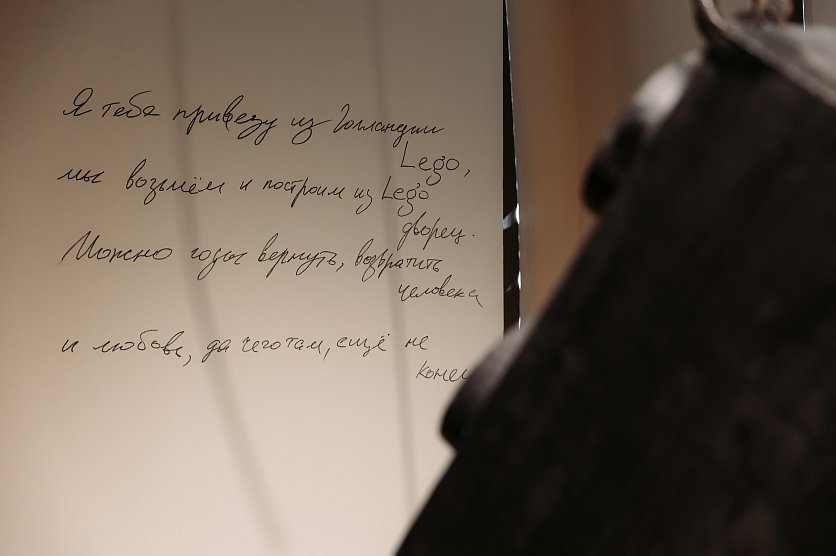 Я тебе привезу из Голландии
Lego,
мы возьмём и построим из Lego
дворец.
Можно годы вернуть, возвратить
человека
и любовь, да чего там, ещё не
конец